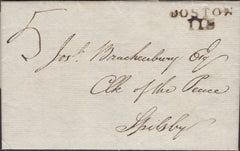 BOSTON
118
5
Jos.h Brackenbury Esq
Clk of the Peace
Spilsby